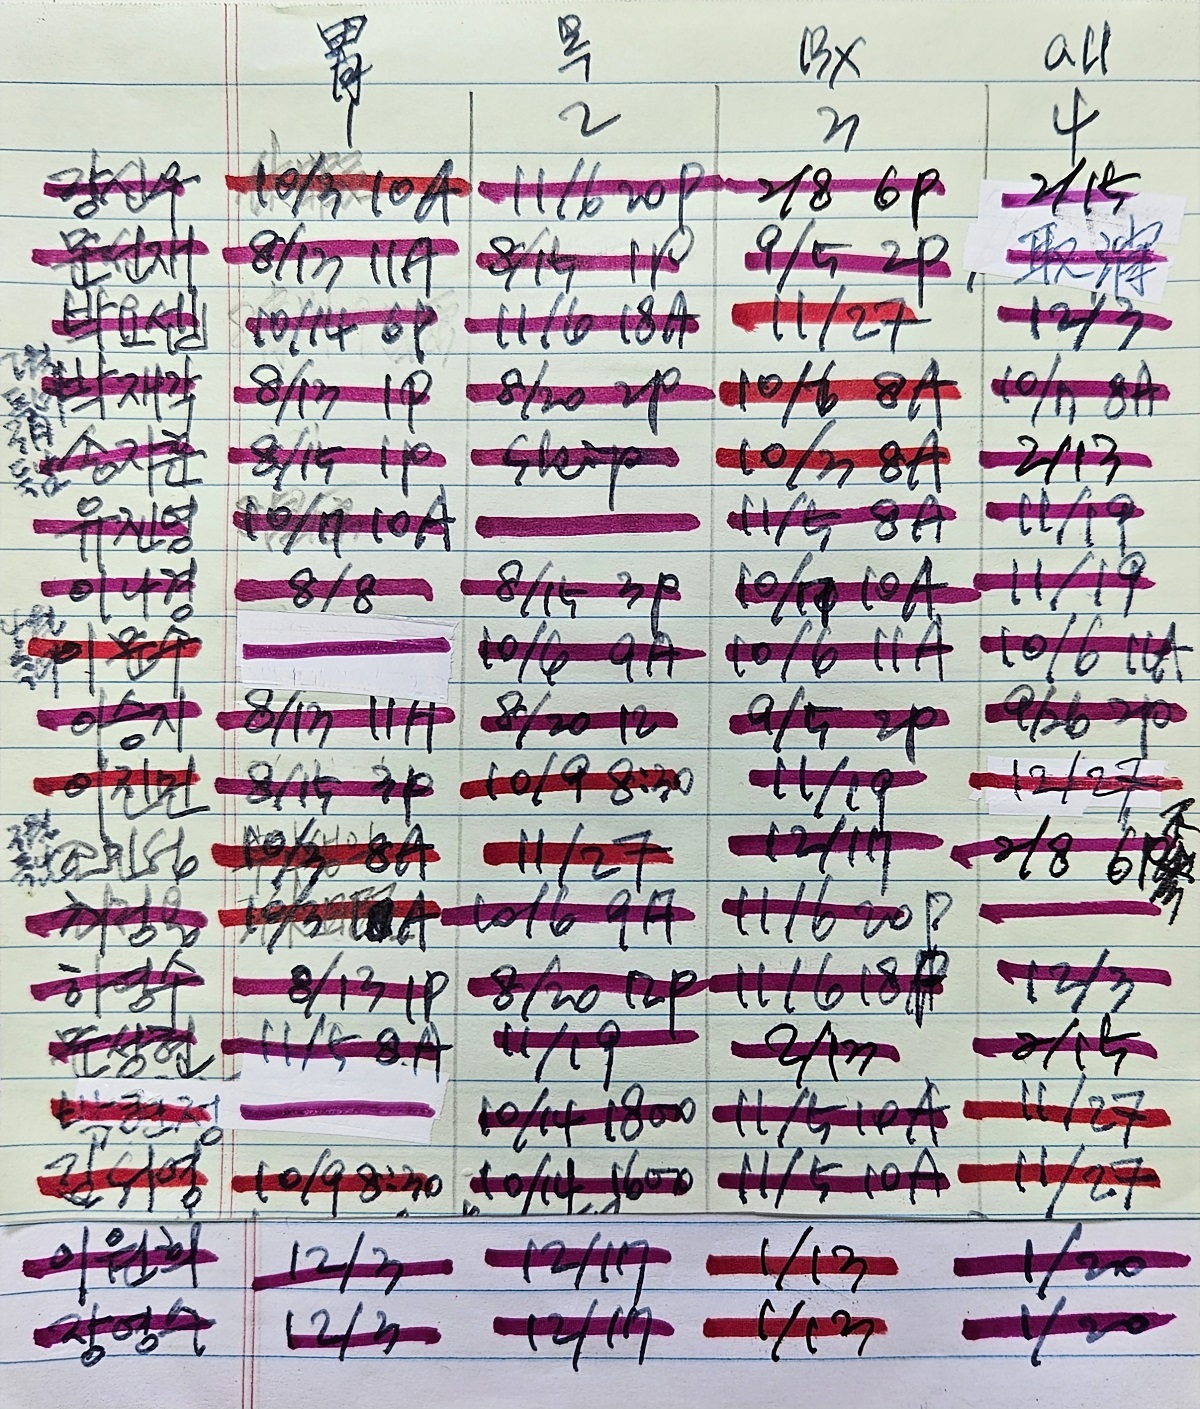 胃 목 Bx all
1 2 3 4
강신우 10/3 10A 11/6 20P 2/8 6P 2/15
문선재 8/13 11A 8/15 1P 9/5 2P 取消
박요셉 10/14 6P 11/6 18A 11/27 12/3
박재각 8/13 1P 8/20 2P 10/6 8A 10/17 8A
송지훈 8/15 1P Skip 10/3 8A 2/13
유진영 10/17 10A 11/5 8A 11/19
이나경 8/8 8/15 3P 10/17 10A 11/19
이문수 10/6 9A 10/6 11A 10/6 11A
이승지 8/13 11A 8/20 12 9/5 2P 9/26 2P
이진민 8/15 3P 10/9 8:30 11/19 12/27
조민성 10/3 8A 11/27 12/17 2/8 6P
10/3 A 10/6 9A 11/6 20P
하영수 8/13 1P 8/20 12P 11/6 18 12/3
문성현 11/5 8A 11/19 2/13 2/15
10/14 1800 11/5 10A 11/27
10/9 8:30 10/14 1600 11/5 10A 11/27
이원희 12/3 12/17 1/13 1/20
장영수 12/3 12/17 1/13 1/20